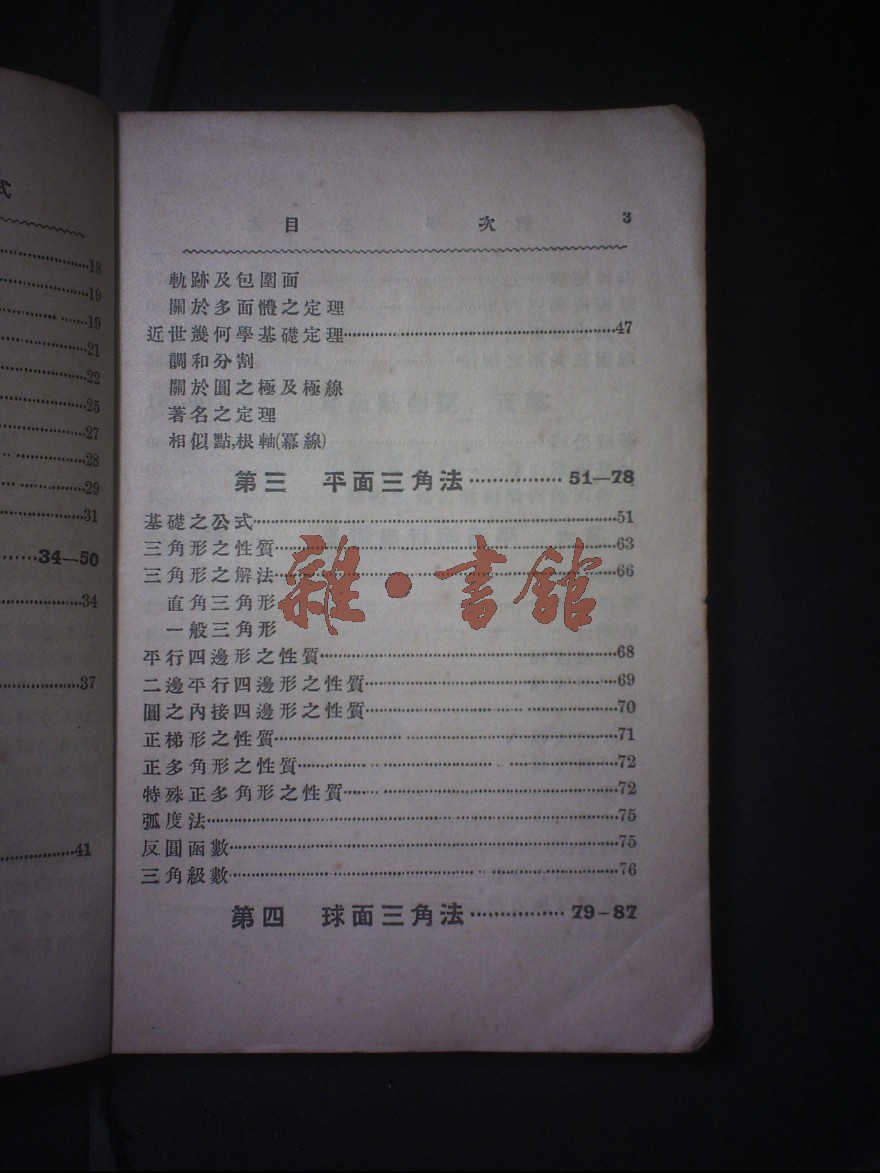 式
18
19
19
21
22
25
27
28
29
31
34—50
34
37
41
目 次 3
軌跡及包圍面
關於多面體之定理
近世幾何學基礎定理……47
調和分割
關於圓之極及極線
著名之定理
相似點,根軸(冪線)
第三 平面三角法……51—78
基礎之公式……51
三角形之性質……63
三角形之解法……66
直角三角形
一般三角形
平行四邊形之性質……68
二邊平行四邊形之性質……69
圓之內接四邊形之性質……70
正梯形之性質……71
正多角形之性質……72
特殊正多角形之性質……72
弧度法……75
反圓函數……75
三角級數……76
第四 球面三角法……79—87
雜·書館